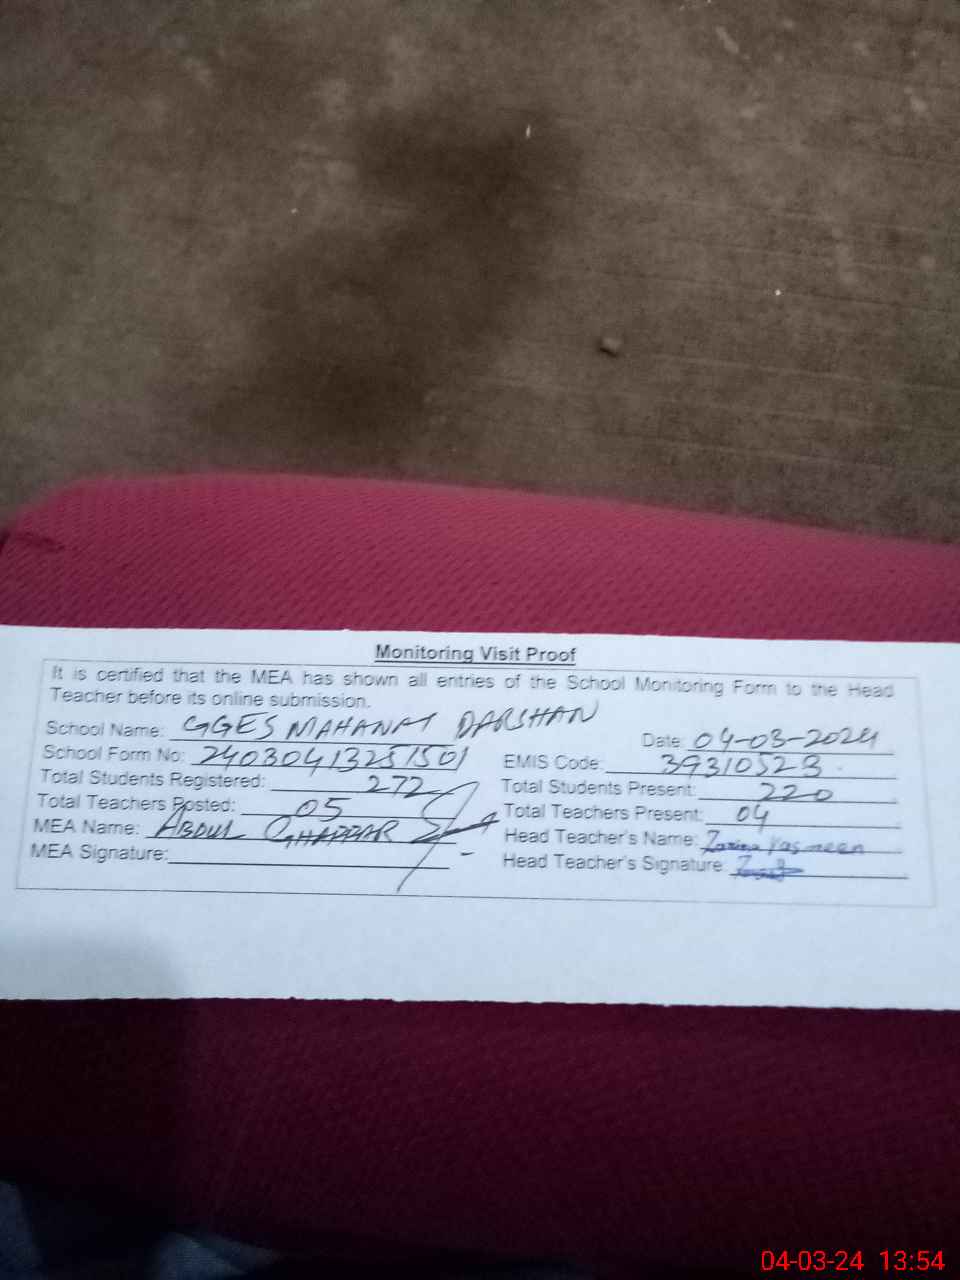 Monitoring Visit Proof
It is certified that the MEA has shown all entries of the School Monitoring Form to the Head
Teacher before its online submission.
School Name: GGES MAHANAT DARSHAN
Date: 04-03-2024
School Form No: 24030413251501
EMIS Code: 39310523
Total Students Registered: 272
Total Students Present: 220
Total Teachers Posted: 05
Total Teachers Present: 04
MEA Name: ABDUL GHAFFAR
Head Teacher's Name: Zarina Yasmeen
MEA Signature:
Head Teacher's Signature:
04-03-24 13:54